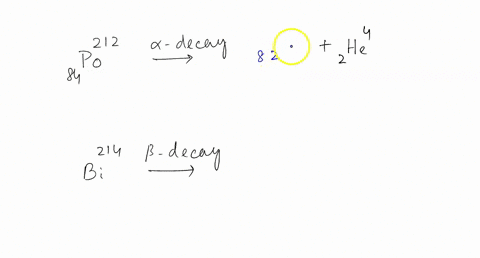 ₈₄Po²¹² α-decay → ₈₂ + ₂He⁴
Bi²¹⁴ β-decay →